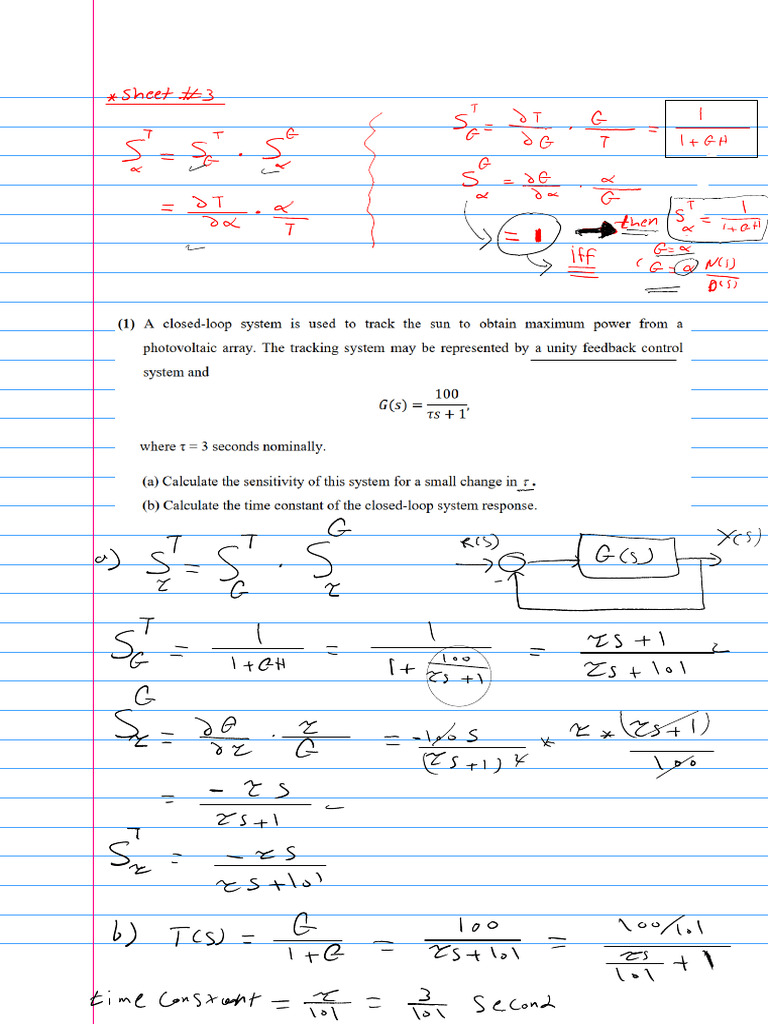 * Sheet #3
S^T_α = S^T_G · S^G_α
= ∂T/∂α · α/T
S^T_G = ∂T/∂G · G/T = 1/(1+GH)
S^G_α = ∂G/∂α · α/G
= 1 → then S^T_α = 1/(1+GH)
iff (G = α
G = α N(s)/D(s)
(1) A closed-loop system is used to track the sun to obtain maximum power from a
photovoltaic array. The tracking system may be represented by a unity feedback control
system and
G(s) = 100/(τs + 1),
where τ = 3 seconds nominally.
(a) Calculate the sensitivity of this system for a small change in τ.
(b) Calculate the time constant of the closed-loop system response.
a) S^T_τ = S^T_G · S^G_τ
R(s) - G(s) Y(s)
S^T_G = 1/(1+GH) = 1/(1 + 100/(τs+1)) = (τs+1)/(τs+101)
S^G_τ = ∂G/∂τ · τ/G = -100s/(τs+1)^2 * τ * (τs+1)/100
= -τs/(τs+1)
S^T_τ = -τs/(τs+101)
b) T(s) = G/(1+G) = 100/(τs+101) = (100/101)/(τs/101 + 1)
time constant = τ/101 = 3/101 second